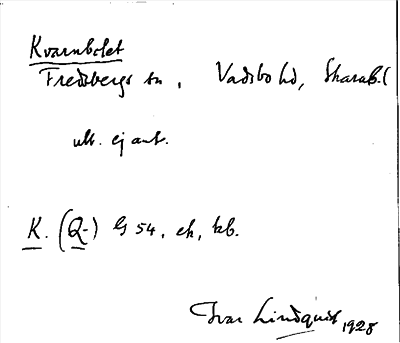 Kvarnbolet
Fredsbergs sn, Vadsbo hd, Skarab. l
utt. ej ant.
K. (Q-) G 54, ek, kb.
Ivar Lindquist, 1928